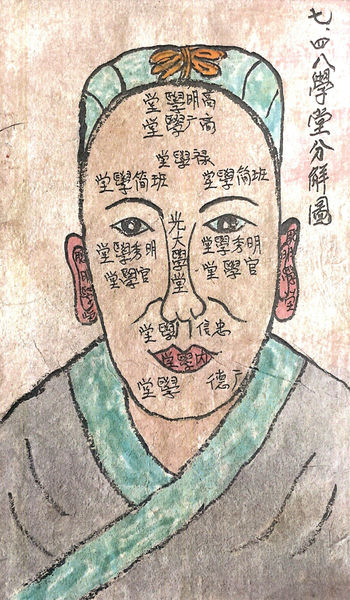 七.四八學堂分解圖
高明學堂
高广學堂
禄學堂
班简學堂
班简學堂
光大學堂
明秀學堂
官學堂
明秀學堂
官學堂
明學堂
明學堂
忠信學堂
内學堂
广德學堂